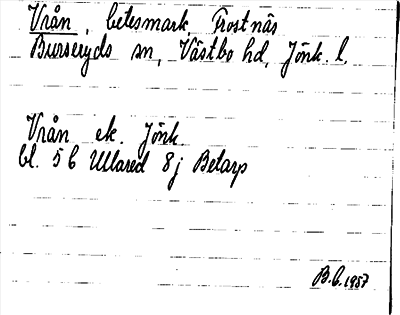 Vrån, betesmark, Frostnäs
Burseryds sn, Västbo hd, Jönk. l.
Vrån ek. Jönk.
bl. 5 C Ullared 8j Betarp
B.C. 1957